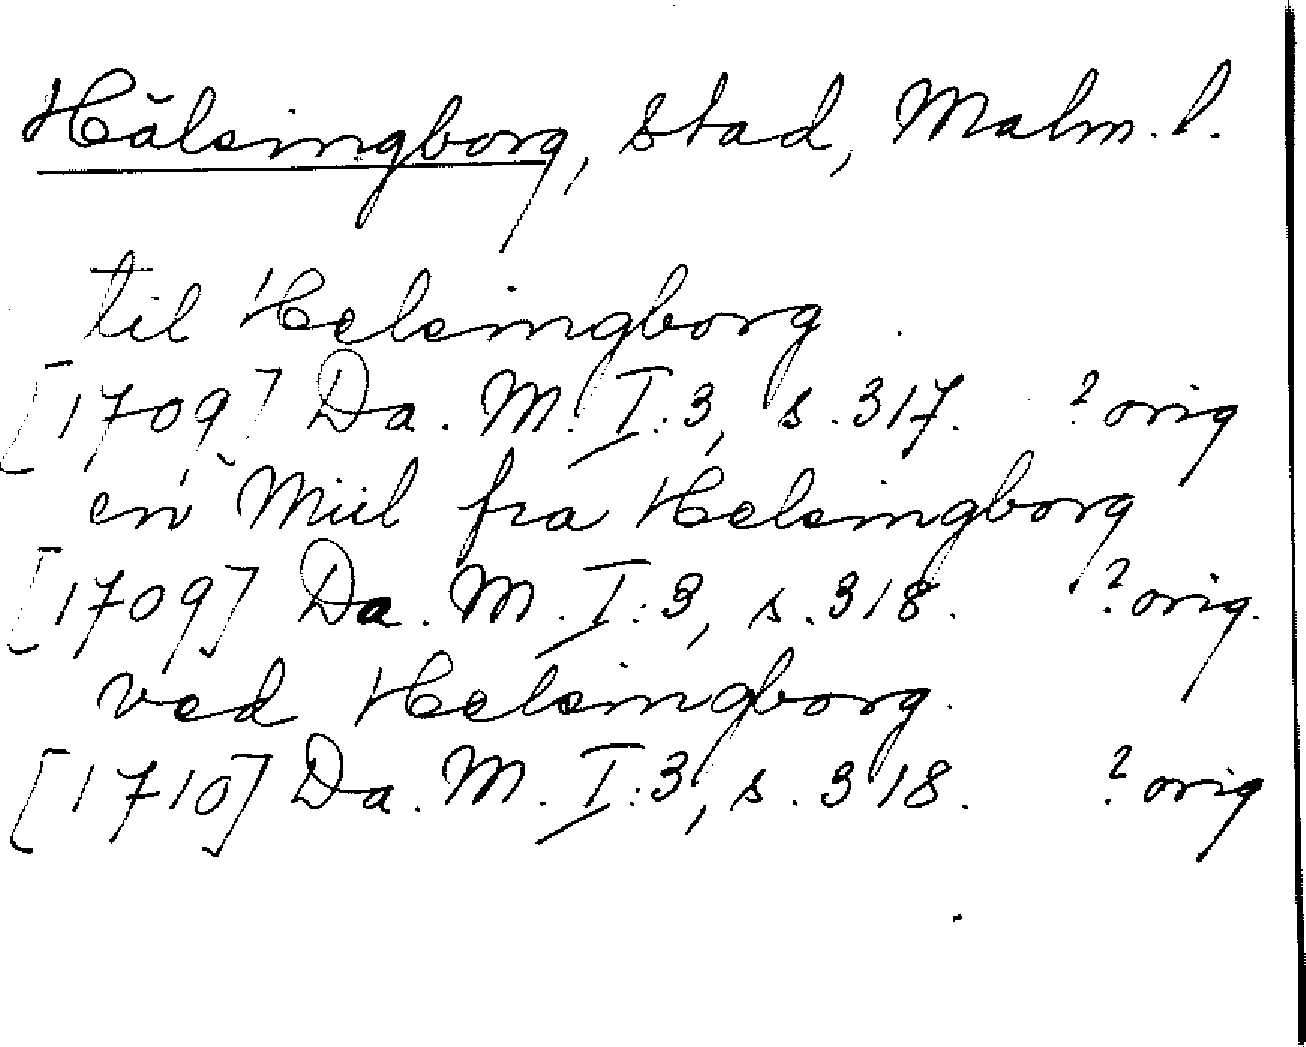 Hälsingborg, stad, Malm. l.
til Helsingborg
[1709] Da. M. I:3, s. 317. ? orig
en Miil fra Helsingborg
[1709] Da. M. I:3, s. 318. ? orig.
ved Helsingborg.
[1710] Da. M. I:3, s. 318. ? orig